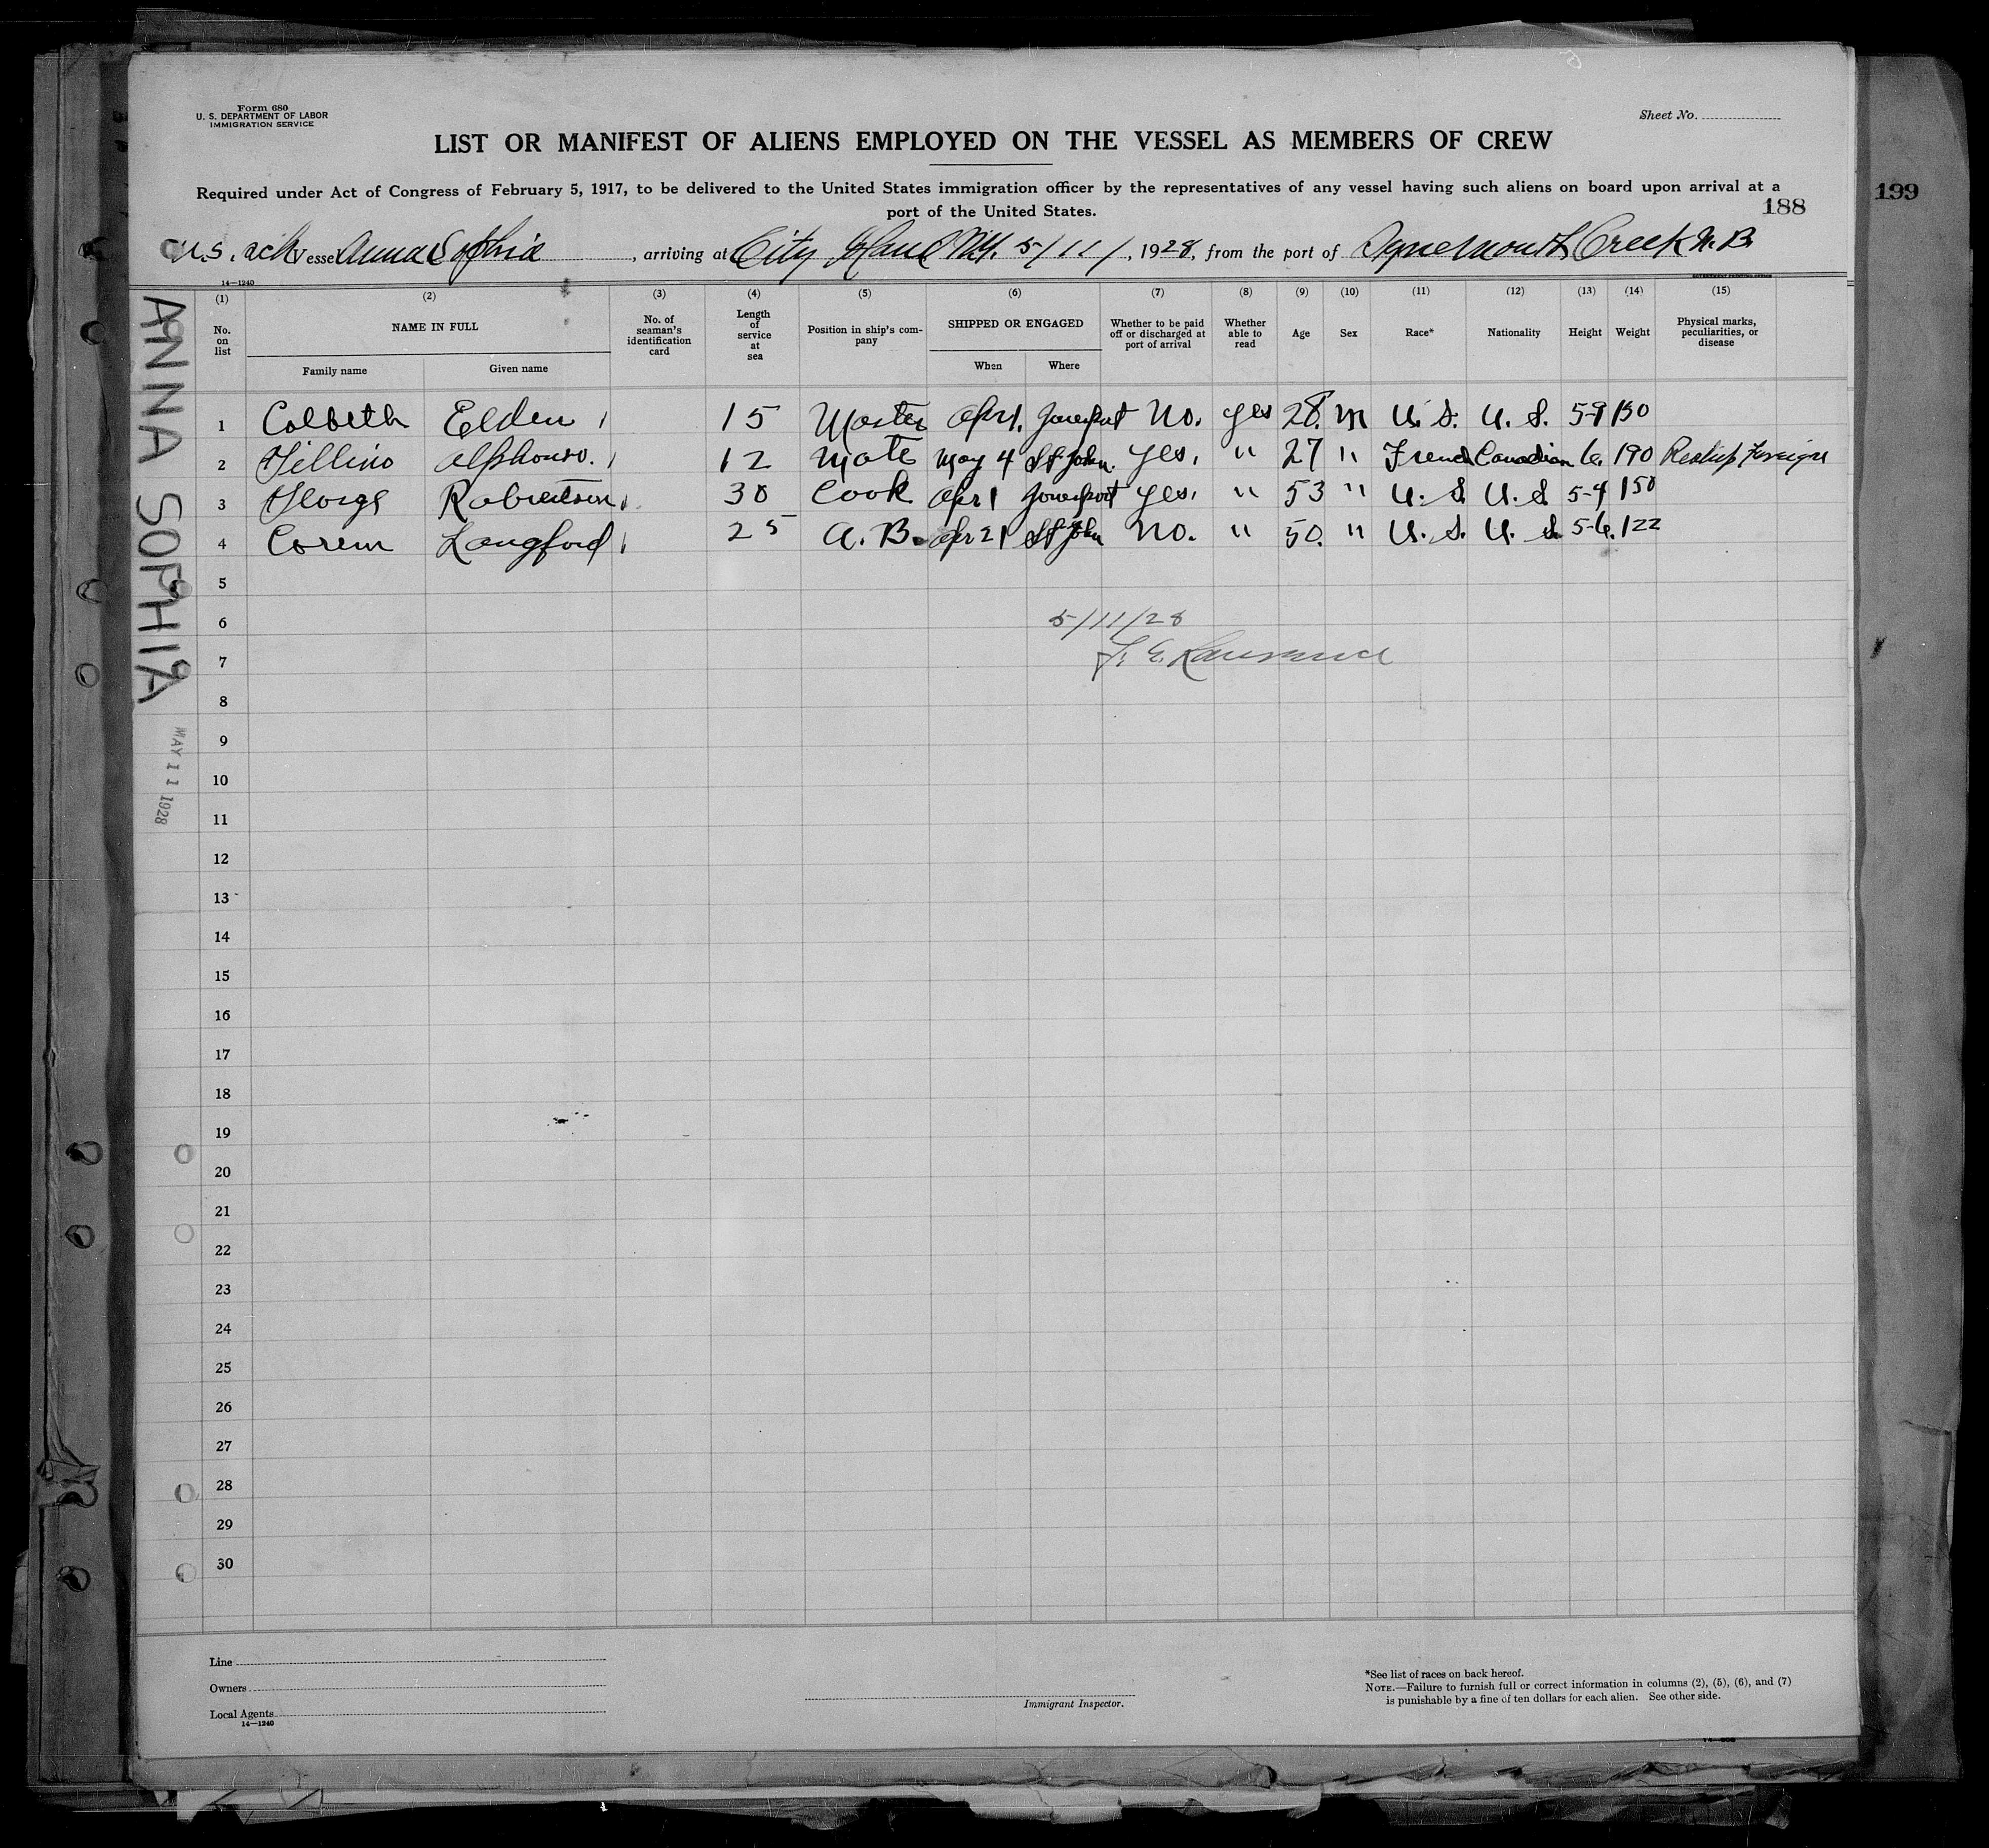 Form 680
U. S. DEPARTMENT OF LABOR
IMMIGRATION SERVICE
Sheet No.
LIST OR MANIFEST OF ALIENS EMPLOYED ON THE VESSEL AS MEMBERS OF CREW
Required under Act of Congress of February 5, 1917, to be delivered to the United States immigration officer by the representatives of any vessel having such aliens on board upon arrival at a
port of the United States.
199
188
U.S. sch Vessel Anna Sophia, arriving at City Island N.Y. 5/11/, 1928, from the port of Creek N.B.
14—1240
ANNA SOPHIA
MAY 11 1928
(1) (2) (3) (4) (5) (6) (7) (8) (9) (10) (11) (12) (13) (14) (15)
No. on list NAME IN FULL No. of seaman's identification card Length of service at sea Position in ship's company SHIPPED OR ENGAGED Whether to be paid off or discharged at port of arrival Whether able to read Age Sex Race* Nationality Height Weight Physical marks, peculiarities, or disease
Family name Given name When Where
1 Colbeth Elden 15 Master Apr 1. Jonesport No. yes 28. M U. S. U. S. 5-9 150
2 Alphonso. 12 Mate May 4 St John. yes. " 27 " French Canadian 6. 190 Reship Foreign
3 George Robertson 30 Cook Apr 1 Jonesport yes. " 53 " U. S. U. S 5-4 150
4 Corem Langford 25 A. B. Apr 21 St John No. " 50. " U. S. U. S. 5-6. 122
5
6
5/11/28
7
8
9
10
11
12
13
14
15
16
17
18
19
20
21
22
23
24
25
26
27
28
29
30
Line
Owners
Local Agents
14—1240
Immigrant Inspector.
*See list of races on back hereof.
NOTE.—Failure to furnish full or correct information in columns (2), (5), (6), and (7)
is punishable by a fine of ten dollars for each alien. See other side.